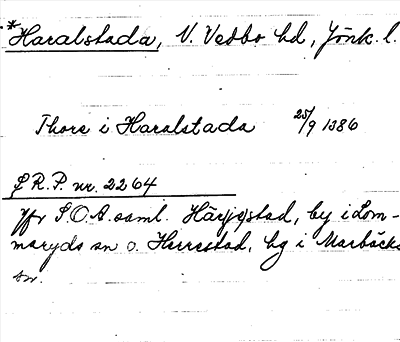 *Haralstada, N. Vedbo hd, Jönk. l.
Thore i Haralstada 25/9 1386
S.R.P. nr. 2264
Jfr S.O.A. saml. Härj(e)stad, by i Lom-
maryds sn o. Herrestad, hg i Marbäcks
sn.